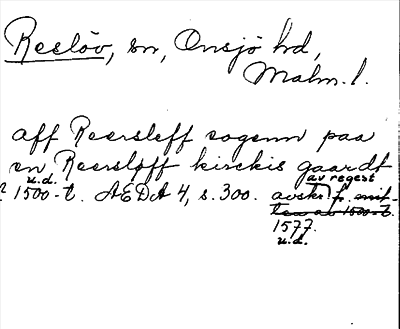 Reslöv, sn, Onsjö hd,
Malm. l.
aff Reersleff sogenn paa
en Reersløff kirckis gaardt
u.d. av regest
1500-t. AEDA 4, s. 300. avskr. f. mit-
ten av 1500-t.
1577.
u.d.